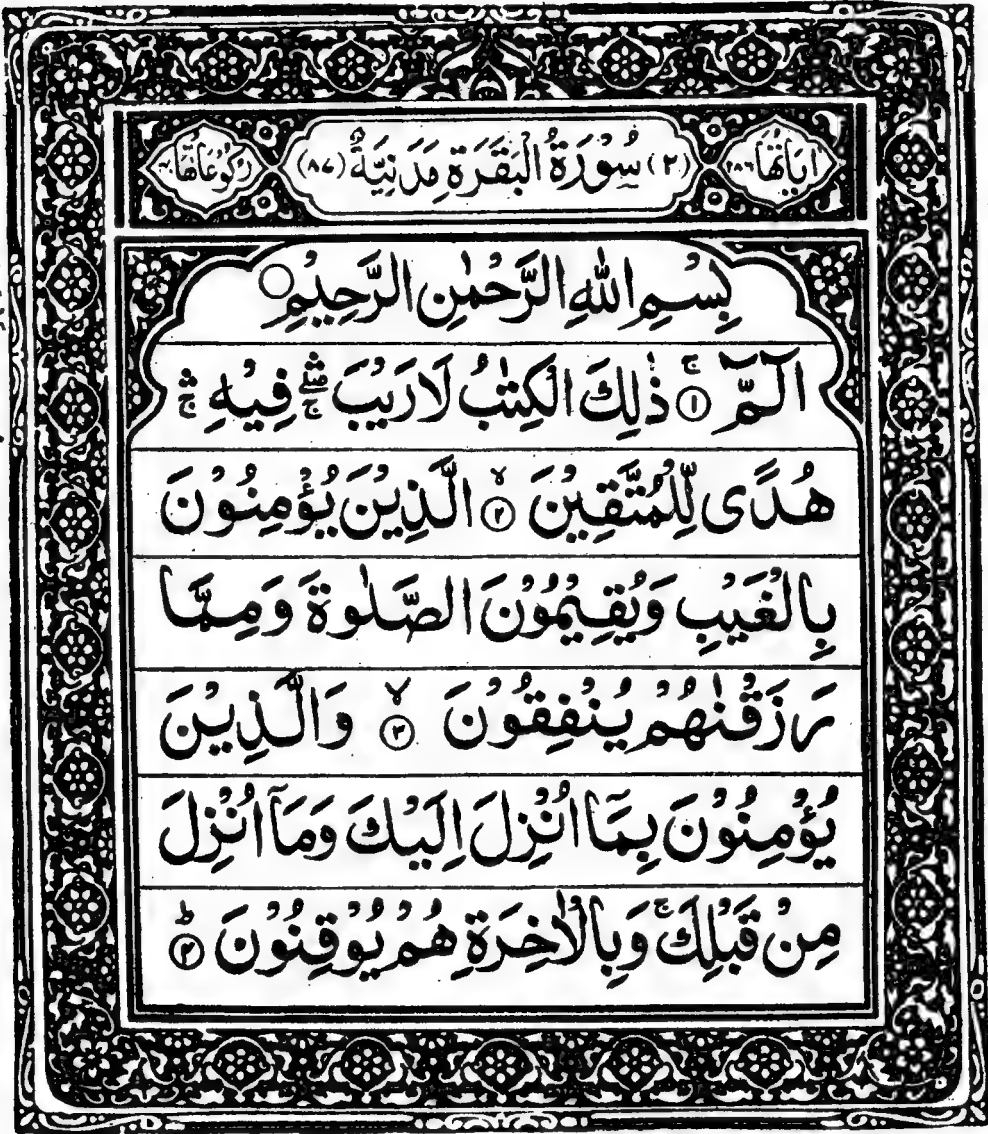 اٰيَاتُهَا ٢٨٦
(٢) سُوْرَةُ الْبَقَرَةِ مَدَنِيَّةٌ (٨٧)
رُكُوْعَاتُهَا
بِسْمِ اللّٰهِ الرَّحْمٰنِ الرَّحِيْمِ ○
الٓمّٓ ۚ ① ذٰلِكَ الْكِتٰبُ لَا رَيْبَ ۖۛۚ فِيْهِ ۛۚ
هُدًى لِّلْمُتَّقِيْنَ ۙ ② الَّذِيْنَ يُؤْمِنُوْنَ
بِالْغَيْبِ وَيُقِيْمُوْنَ الصَّلٰوةَ وَمِمَّا
رَزَقْنٰهُمْ يُنْفِقُوْنَ ۙ ③ وَالَّذِيْنَ
يُؤْمِنُوْنَ بِمَآ اُنْزِلَ اِلَيْكَ وَمَآ اُنْزِلَ
مِنْ قَبْلِكَ ۚ وَبِالْاٰخِرَةِ هُمْ يُوْقِنُوْنَ ؕ ④